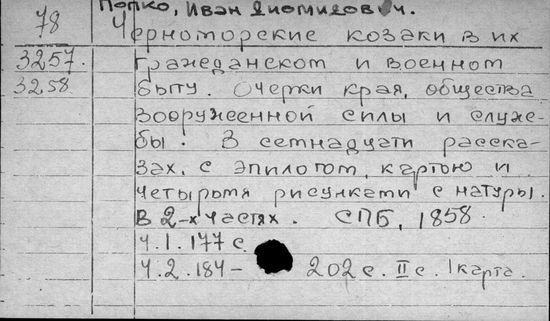 Попко, Иван Диомидович.
78 Черноморские козаки в их
3257. гражданском и военном
3258. быту. Очерки края, общества
вооруженной силы и служ-
бы. В семнадцати расска-
зах, с эпилогом, картою и
четырьмя рисунками с натуры.
В 2-х частях. СПБ, 1858.
Ч.1. 177 с.
Ч.2. 184- 202 с. II с. 1 карта.